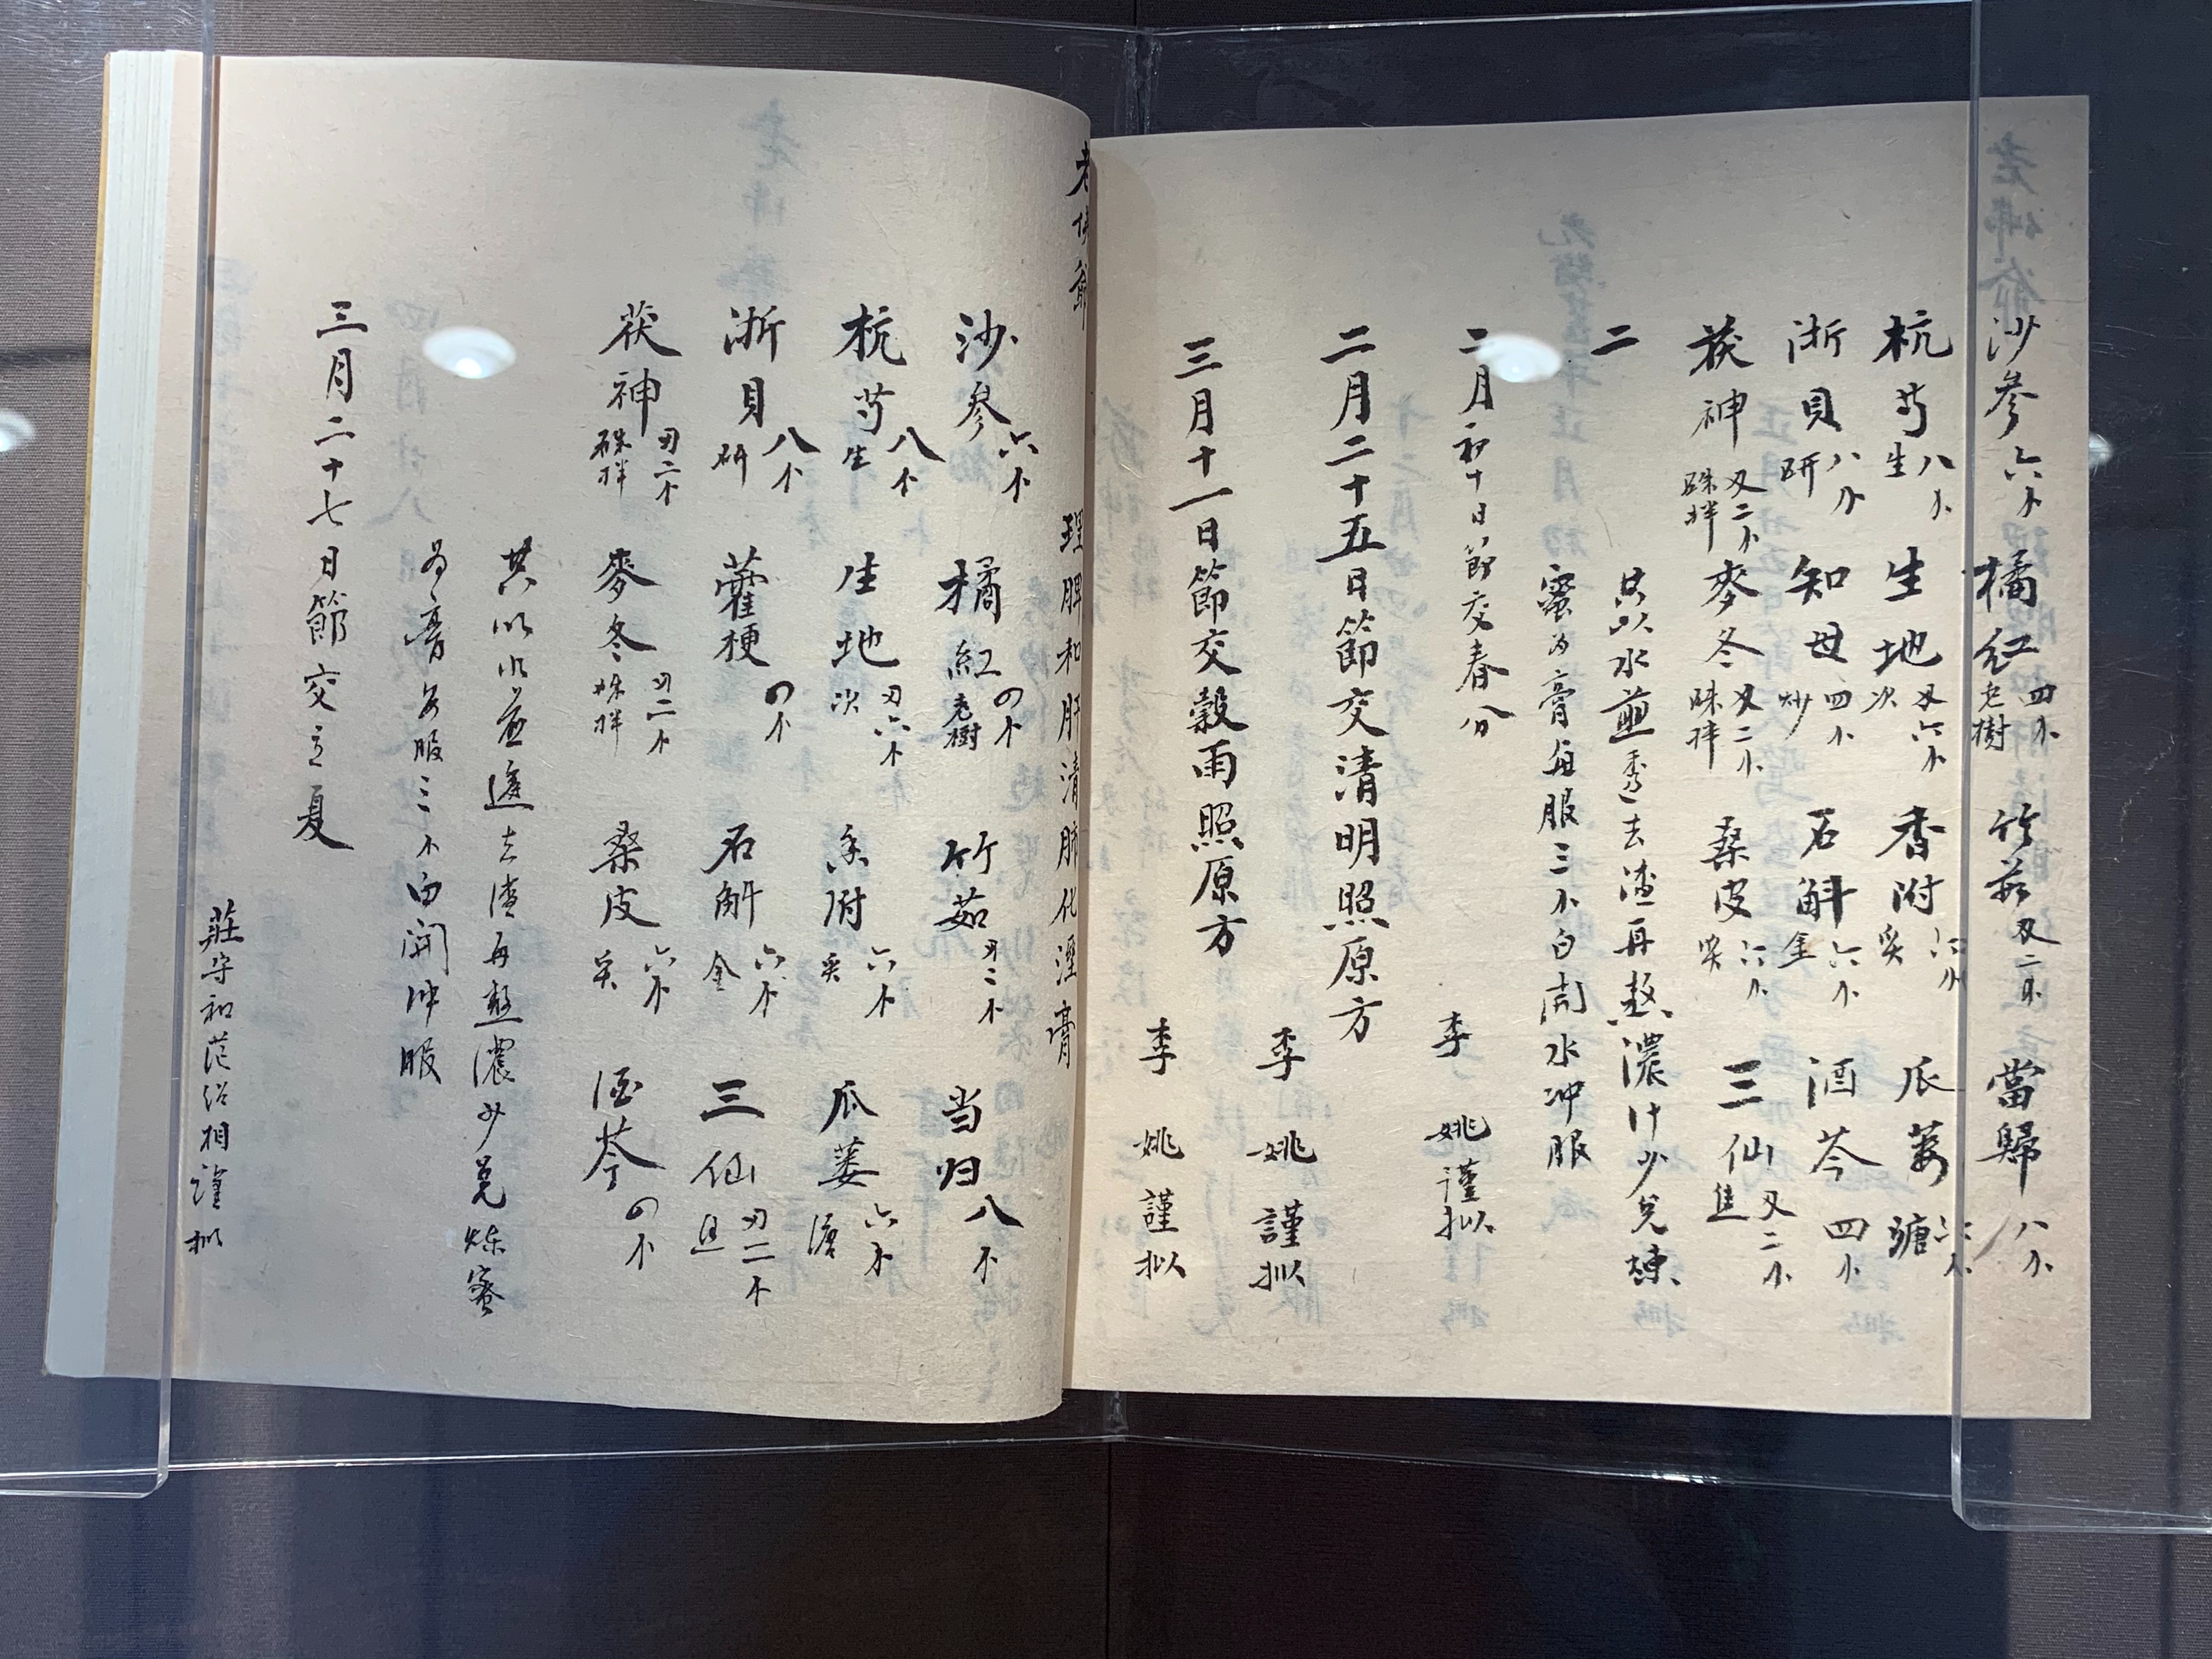 沙參六卜 橘紅四卜老樹 竹茹又二卜 當歸八卜
杭芍八卜生 生地又六卜次 香附六卜炙 瓜蔞六卜
浙貝八卜研 知母四卜炒 石斛六卜金 酒芩四卜
茯神又二卜硃拌 麥冬又二卜硃拌 桑皮六卜炙 三仙又二卜焦
二 共以水煎透去渣再熬濃汁少兌煉
蜜為膏每服三卜白開水冲服
二月初十日節交春分 李 姚謹拟
二月二十五日節交清明照原方 李 姚謹拟
三月十一日節交穀雨照原方 李 姚謹拟
老佛爺 理脾和肝清肺化溼膏
沙參六卜 橘紅四卜老樹 竹茹刄二卜 当归八卜
杭芍八卜生 生地刄六卜次 香附六卜炙 瓜蔞六卜
浙貝八卜研 藿梗四卜 石斛六卜金 三仙刄二卜
茯神刄二卜硃拌 麥冬刄二卜硃拌 桑皮六卜炙 酒芩四卜
共以水煎透去渣再熬濃少兌煉蜜
為膏每服三卜白開冲服
三月二十七日節交立夏
莊守和 范紹相 謹拟